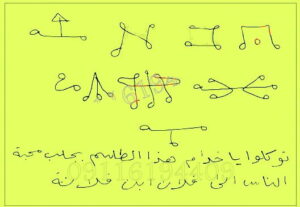 توكلوا يا خدام هذا الطلسم بجلب محبة
الناس الى فلان ابن فلانة
09116194409